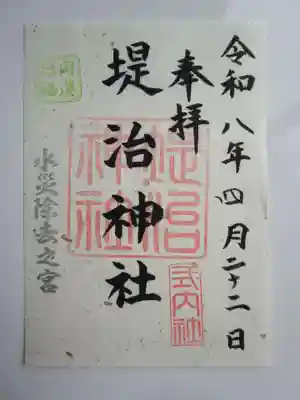 令和八年四月二十二日
奉拝
堤治神社
堤治神社
式内社
水災除去之宮